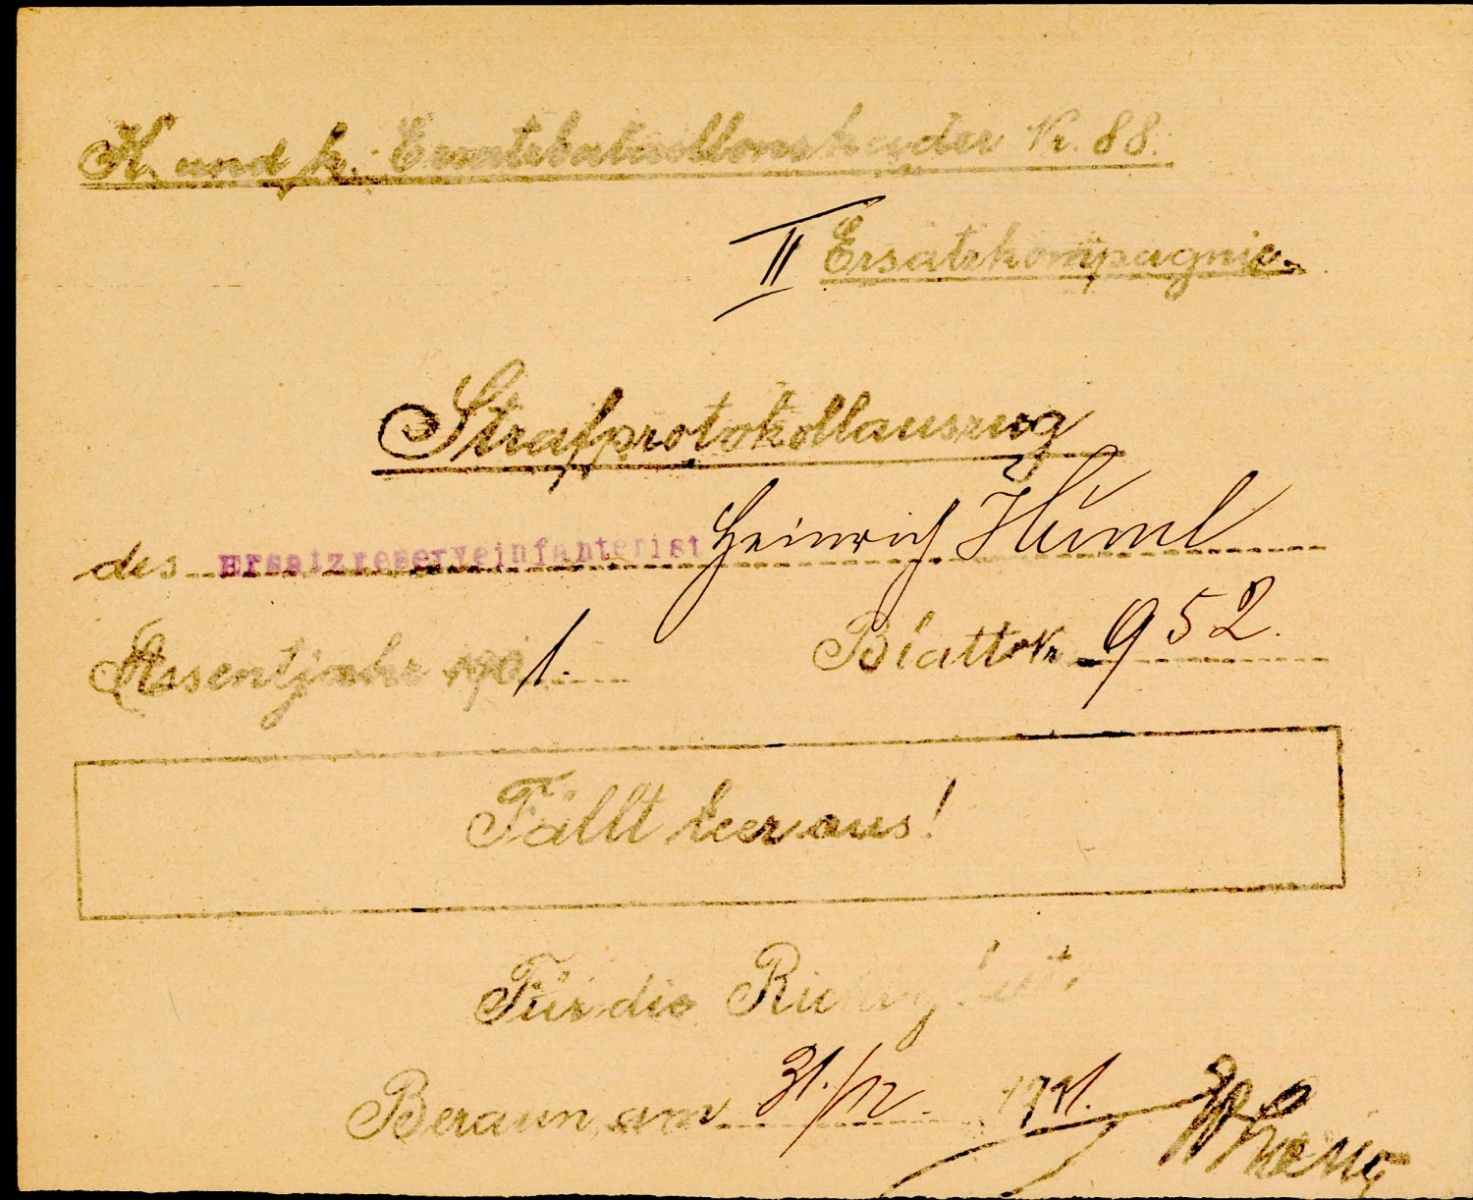 K. und k. Ersatzbataillonskader Nr. 88.
II Ersatzkompagnie.
Strafprotokollauszug
des Ersatzreserveinfanterist Heinrich Huml
Assentjahr 1901. Blatt Nr. 952.
Fällt leer aus!
Für die Richtigkeit:
Beraun, am 31./12. 1911.